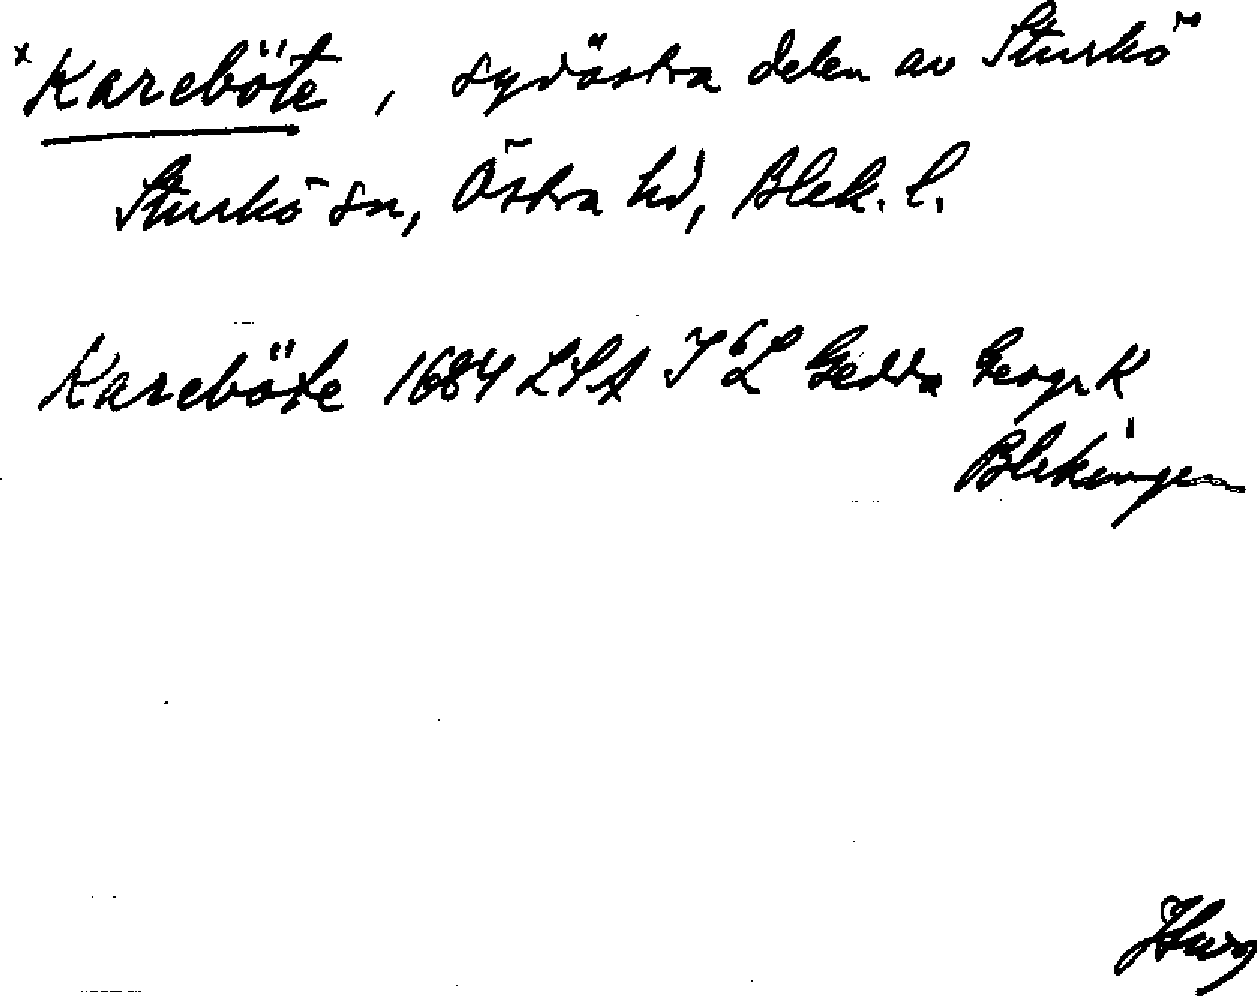 x Kareböte, sydöstra delen av Sturkö
Sturkö sn, Östra hd, Blek. l.
Kareböte 1684 LSA I 6 L Gedda Geogr K
Blekingen